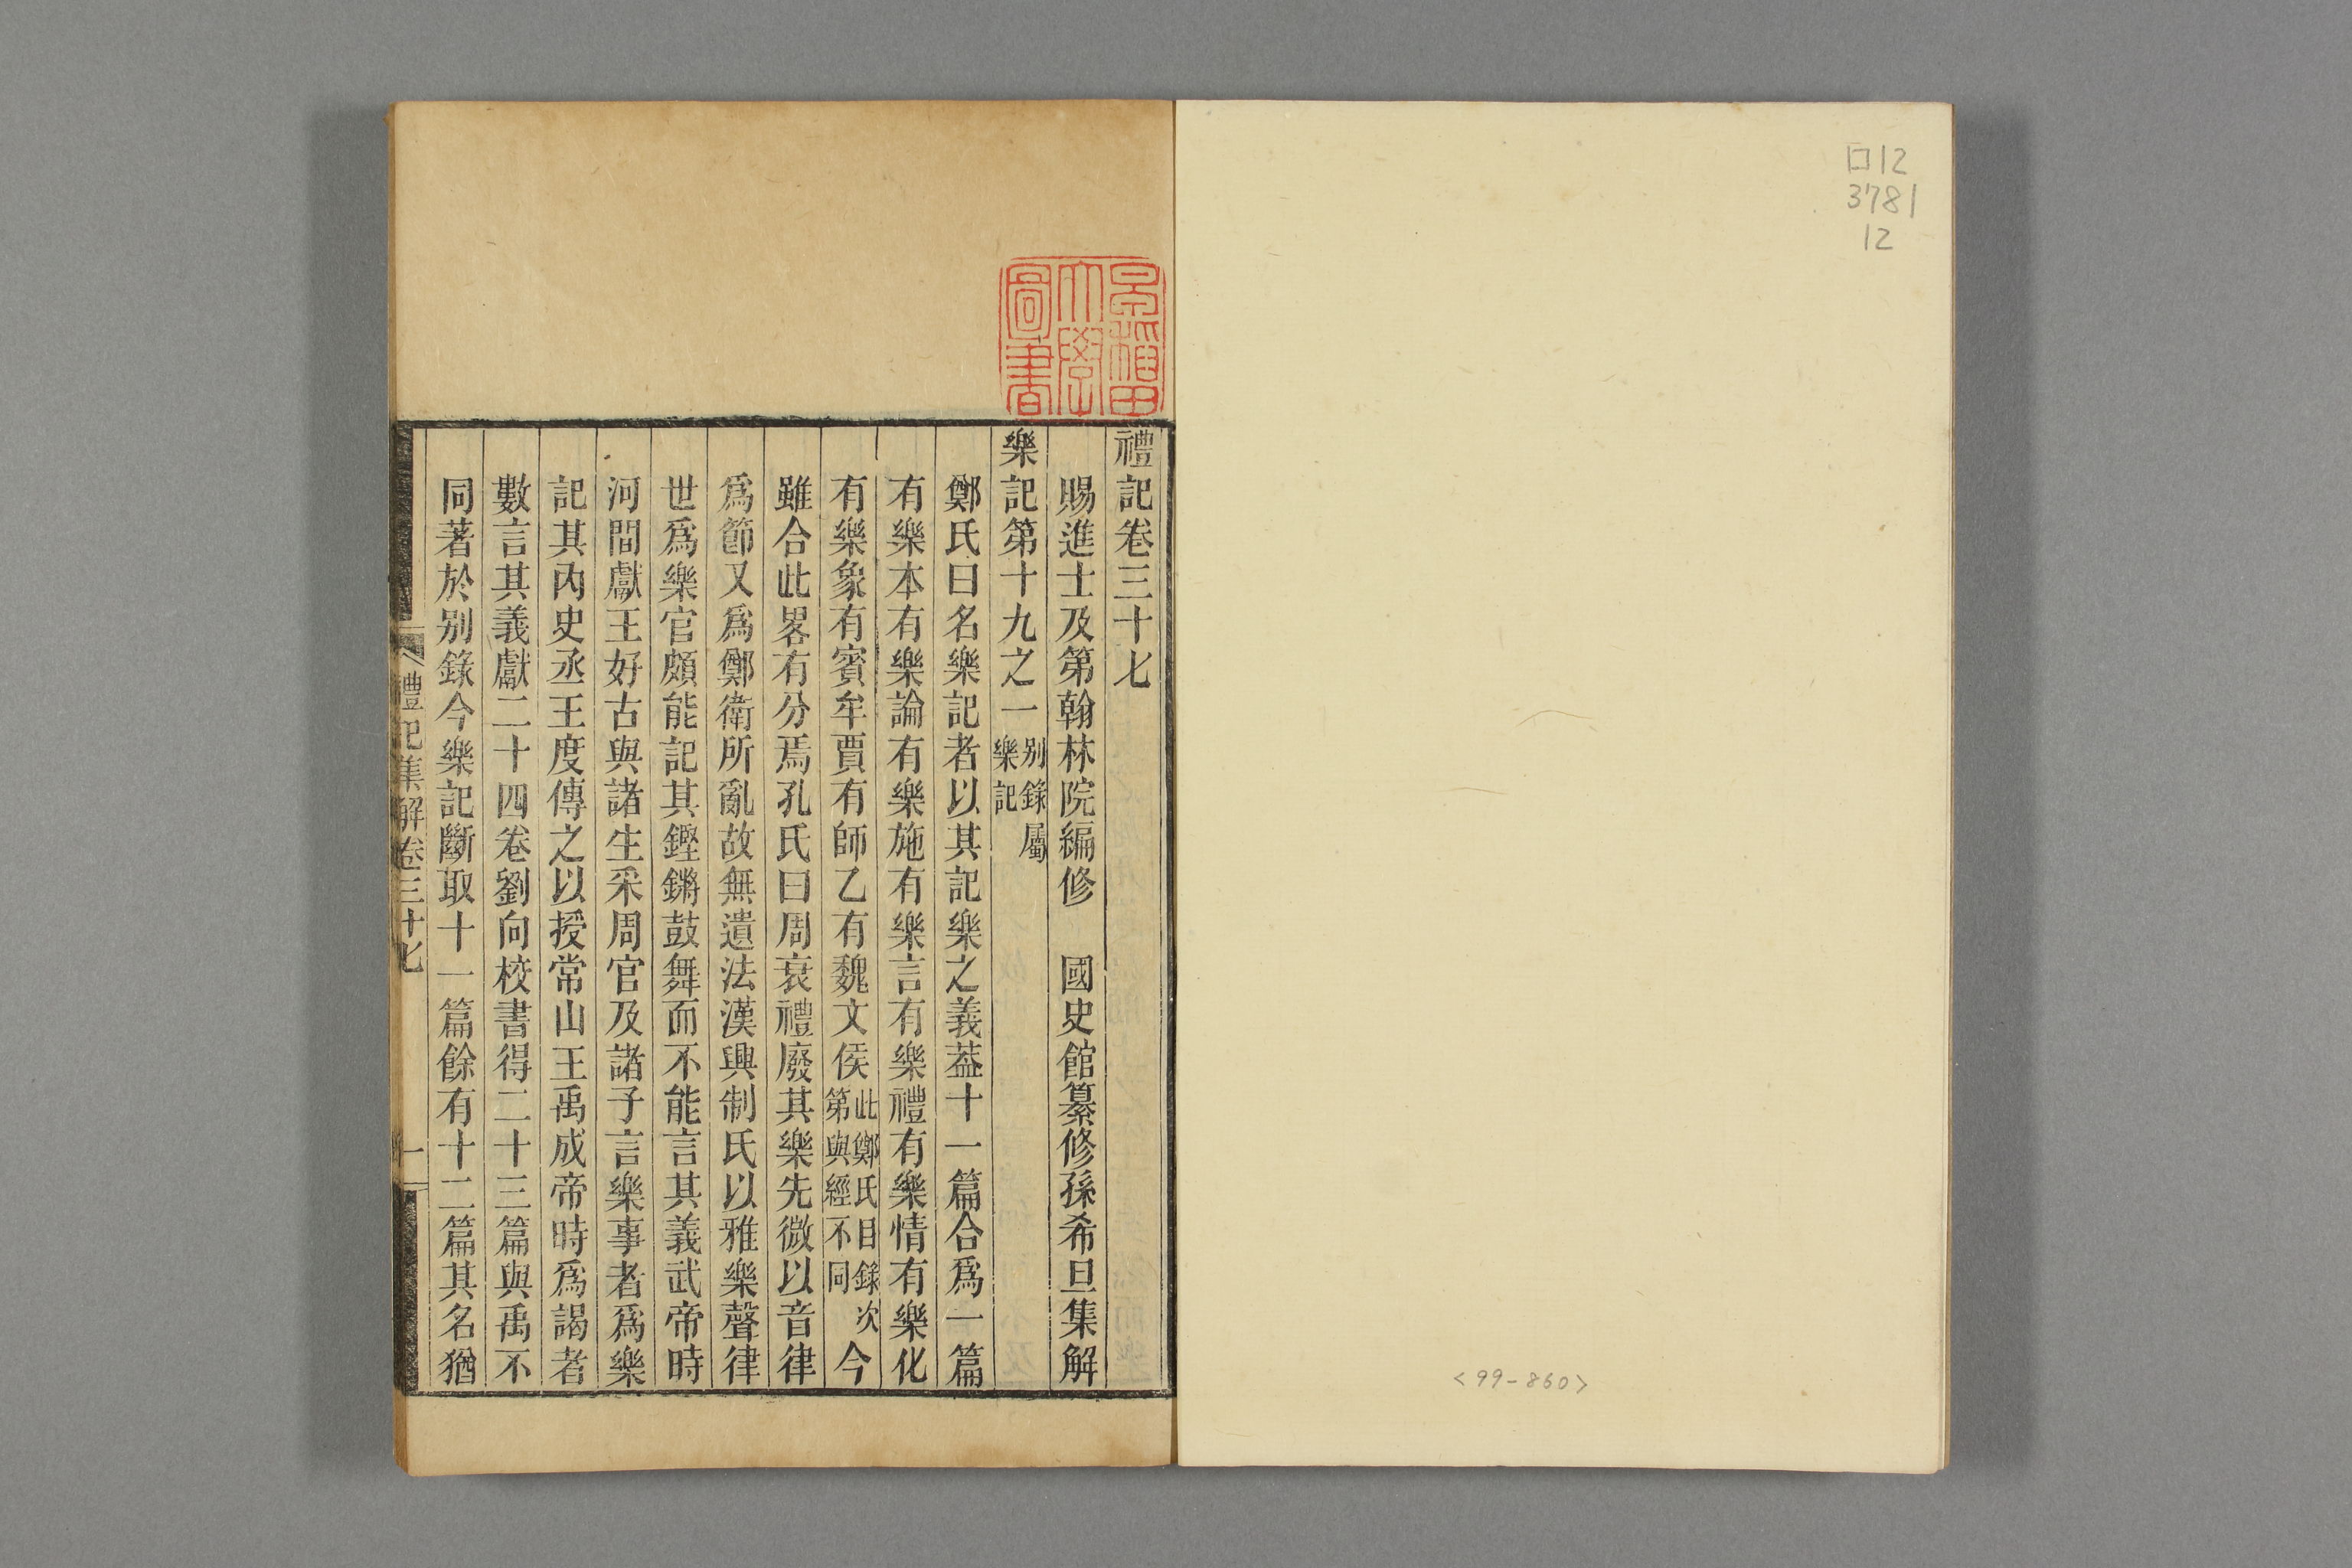 口12
3781
12
<99-860>
早稲田
大學
圖書
禮記卷三十七
賜進士及第翰林院編修 國史館纂修孫希旦集解
樂記第十九之一 别錄屬樂記
鄭氏曰名樂記者以其記樂之義葢十一篇合爲一篇
有樂本有樂論有樂施有樂言有樂禮有樂情有樂化
有樂象有賓牟賈有師乙有魏文侯此鄭氏目錄次第與經不同今
雖合此畧有分焉孔氏曰周衰禮廢其樂先微以音律
爲節又爲鄭衛所亂故無遺法漢興制氏以雅樂聲律
世爲樂官頗能記其鏗鏘鼓舞而不能言其義武帝時
河間獻王好古與諸生采周官及諸子言樂事者爲樂
記其内史丞王度傳之以授常山王禹成帝時爲謁者
數言其義獻二十四卷劉向校書得二十三篇與禹不
同著於别錄今樂記斷取十一篇餘有十二篇其名猶
禮記集解卷三十七
一